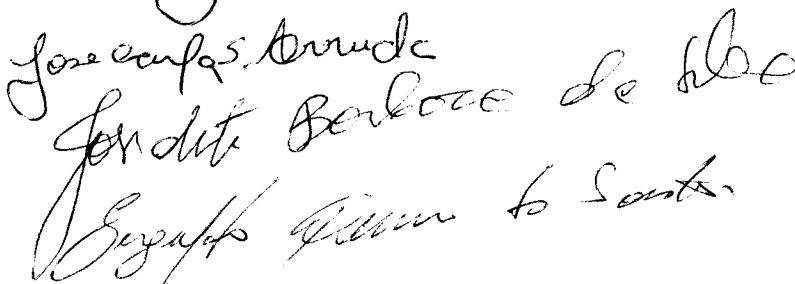 Jose Carlos Arruda
Josidete Barboza da Silva
to Santos